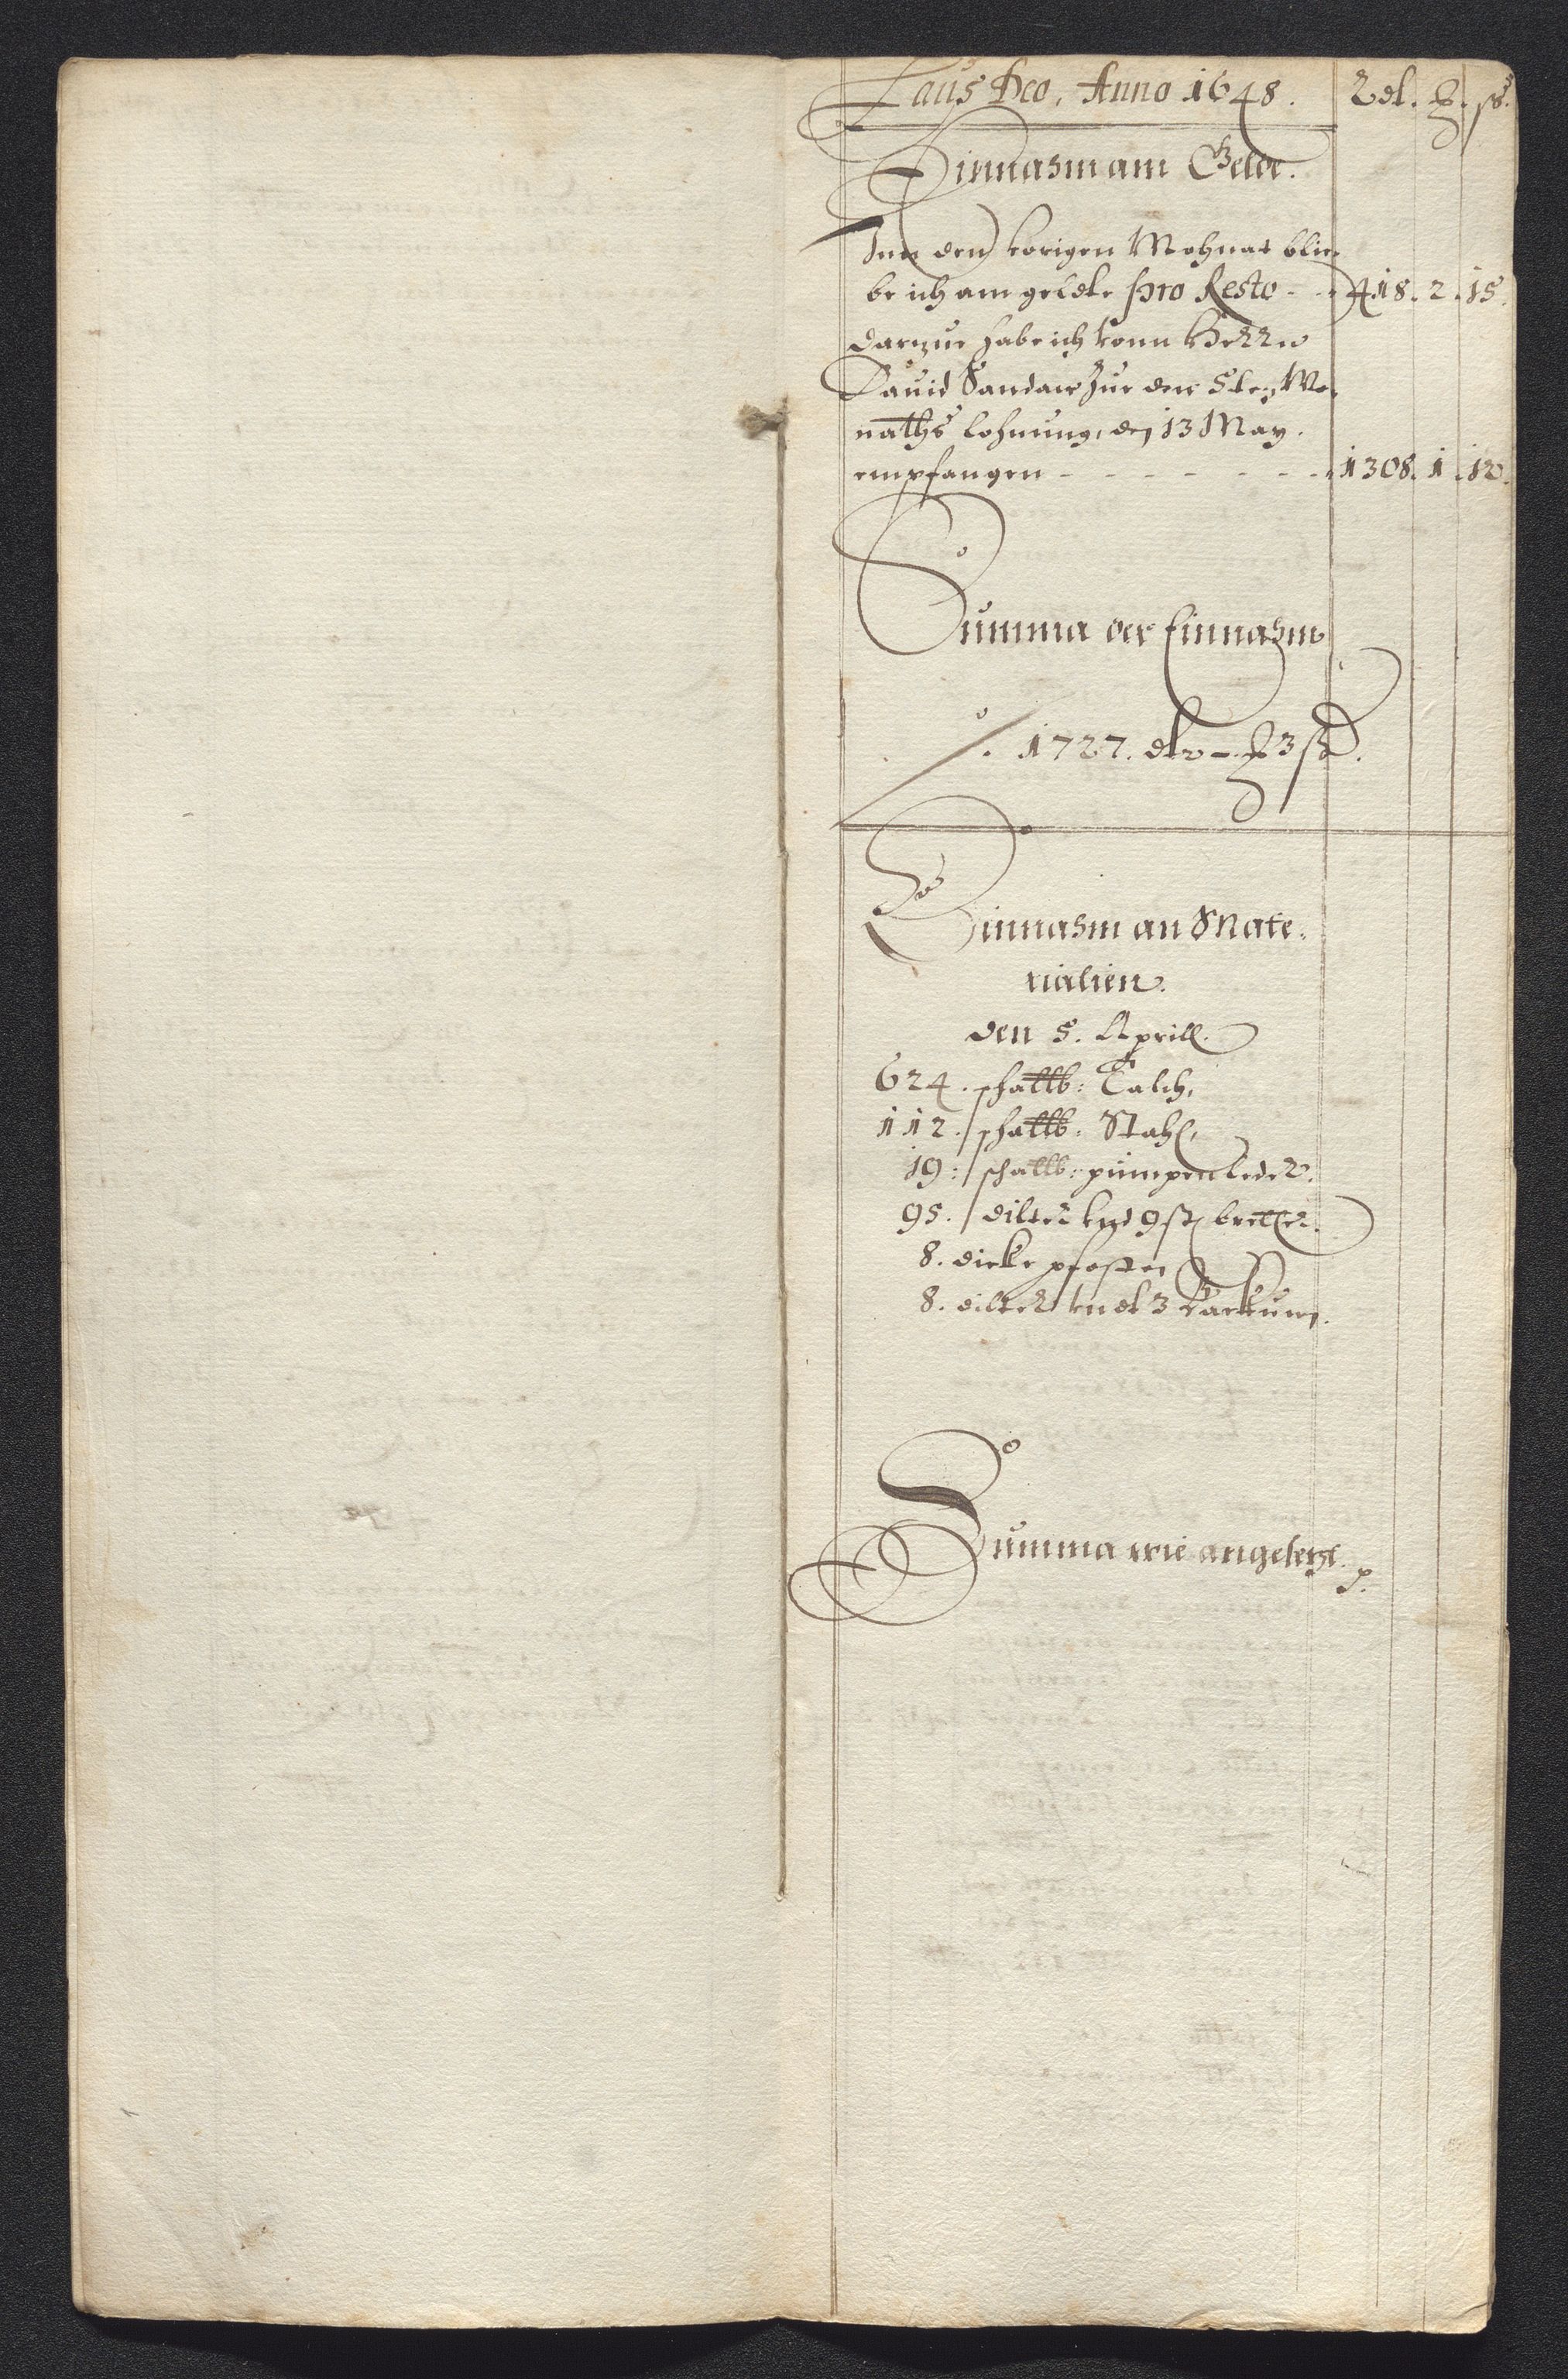 Laus Deo, Anno 1648. Rdl. ß.
Einnahm am Gelde.
Inn den vorigen Mohnat blie,
be ich am gelde pro Resto - - 418. 2. 15.
darzue habe ich vonn Herrn
Dauid Sandaw Zur den 5ten Mo,
naths lohnung, den 13 May.
empfangen - - - - - - - 1308. 1. 12.
Summa der Einnahm
1727. dlr - 3 ß.
Einnahm an Mate,
rialien.
den 5. Aprill.
624. schallb: Talch,
112. schallb: Stahl,
19: schallb: pumpen leder.
95. dilter vnd 9 ßl bretter.
8. dicke pfosten
8. dilter vndt 3
Summa wie angesetzt.